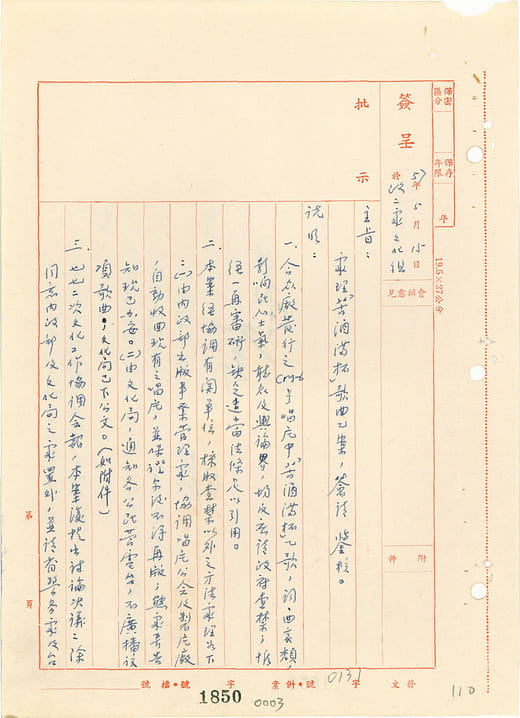 保密區分
保存年限 年
19.5×27公分
簽呈
57年5月15日
於政二處文化組
會辦意見
附件
批示
主旨：
處理「苦酒滿杯」歌曲乙案，簽請 鑒核。
說明：
一、合眾廠發行之 號唱片中「苦酒滿杯」乙歌，詞、曲哀頹，
影響民心士氣，聽眾及輿論界，均反應請政府查禁，惟
經一再審研，缺乏適當法條足以引用。
二、本案經協調有關單位，採取查禁以外之方法處理如下
：(一)由內政部出版事業管理處，協調唱片公會及製片廠
，自動收回現有之唱片，並保證爾後不得再版，熊處長告
知現已辦妥。(二)由文化局，通知各公民營電台，不廣播該
項歌曲，文化局已下公文。(如附件)
三、七七二次文化工作協調會報，本案復提出討論決議：除
同意內政部及文化局之處置外，並請省警務處及台
第 頁
發文 字 號・併案 字 號・檔號
0131
1850
0003
110